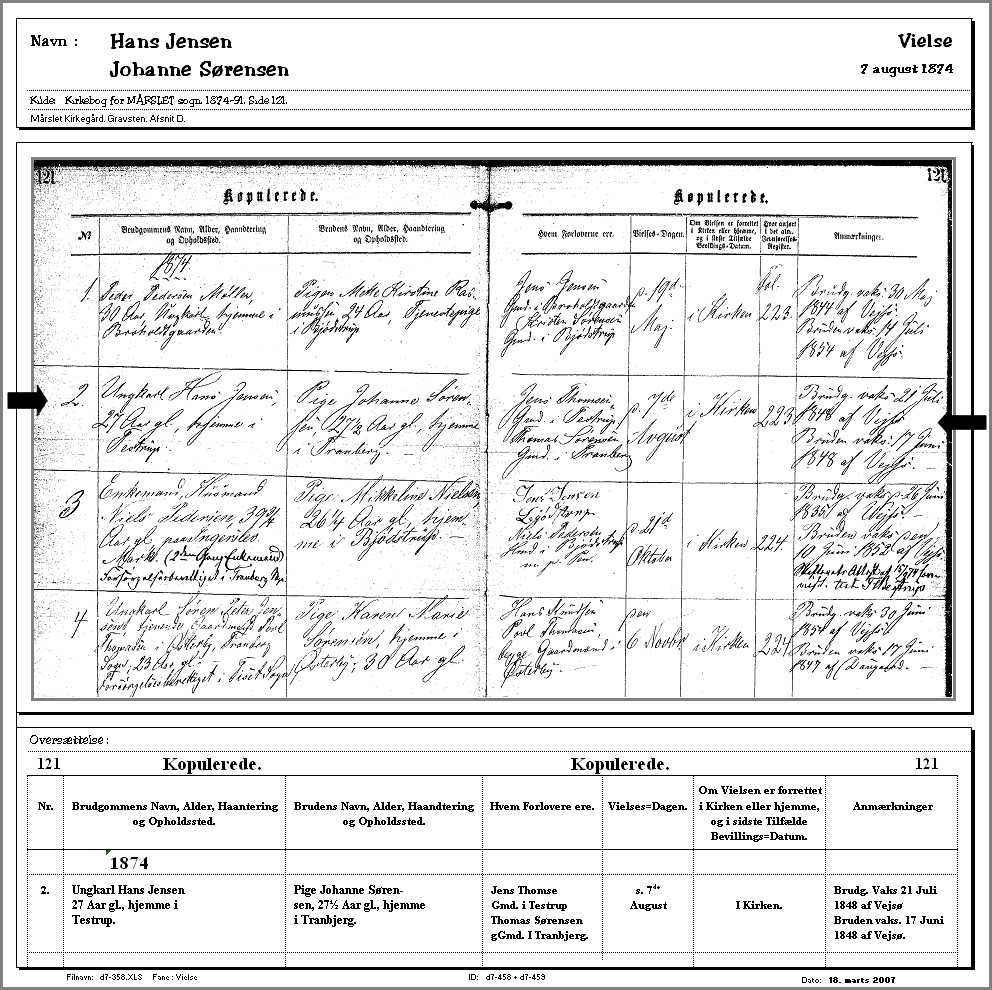 Navn : Hans Jensen Vielse
Johanne Sørensen 7 august 1874
Kilde: Kirkebog for MÅRSLET sogn. 1874-91. Side 121.
Mårslet Kirkegård. Gravsten. Afsnit D.
121 121
Kopulerede. Kopulerede.
№ Brudgommens Navn, Alder, Haandtering og Opholdssted. Brudens Navn, Alder, Haandtering og Opholdssted. Hvem Forloverne ere. Vielses-Dagen. Om Vielsen er forrettet i Kirken eller hjemme, og i sidste Tilfælde Bevillings-Datum. Hvor anført i det alm. Jevnførelses-Register. Anmærkninger.
1874
1. Peder Pedersen Møller,
30 Aar, Ungkarl, hjemme i
Borholdtgaarden
Pigen Mette Kirstine Ras-
mussen 24 Aar, Tjenestepige
i Bjödstrup
Jens Jensen
Gmd. i Borholdtgaarden
Kristen Sørensen
Gmd. i Bjödstrup
p. 19d.
Maj
i Kirken
Fol.
223.
Brudg. vaks. 30 Maj
1844 af Vejsø.
Bruden vaks. 14 Juli
1854 af Vejsø.
2. Ungkarl Hans Jensen,
27 Aar gl., hjemme i
Testrup.
Pige Johanne Søren-
sen, 27½ Aar gl., hjemme
i Tranberg. —
Jens Thomsen
Gmd. i Testrup
Thomas Sörensen
Gmd. i Tranberg
p. 7de
August
i Kirken
223
Brudg. vaks. 21 Juli
1848 af Vejsø
Bruden vaks. 17 Juni
1848 af Vejsø. —
3 Enkemand, Husmand
Niels Pedersen, 39¾
Aar gl. paa Ingerslev
Mark. (2den Gang Enkemand)
Forsørgelsesberettiget i Tranberg
Pige Mikkeline Nielsen,
26¼ Aar gl., hjem-
me i Bjödstrup. —
Jens Jensen
Niels Pedersen
Hmd. i Bjödstrup
p. 21d
Oktober
i Kirken
224.
Brudg. vaks. p. 26 Juni
1835 af Vejsø. —
Bruden vaks. pen
10 Juni 1852 af Vejsø.
4 Ungkarl Søren Peter Jen-
sen, tjenende Gaardmand Povl
Thomasen i Østerby, Tranberg
Sogn, 23 Aar gl.
Forsørgelsesberettiget i Tiset Sogn
Pige Karen Marie
Sørensen, hjemme i
Østerby, 30 Aar gl.
Hans Knudsen
Povl Thomasen
begge Gaardmænd i
Østerby
pen
6 Novbr.
i Kirken
224
Brudg. vaks 30 Juni
1854 af Vejsø
Bruden vaks. 17 Juni
1847 af Daugaard. —
Oversættelse :
121 Kopulerede. Kopulerede. 121
Nr. Brudgommens Navn, Alder, Haantering og Opholdssted. Brudens Navn, Alder, Haandtering og Opholdssted. Hvem Forlovere ere. Vielses=Dagen. Om Vielsen er forrettet i Kirken eller hjemme, og i sidste Tilfælde Bevillings=Datum. Anmærkninger
1874
2. Ungkarl Hans Jensen
27 Aar gl., hjemme i
Testrup.
Pige Johanne Søren-
sen, 27½ Aar gl., hjemme
i Tranbjerg.
Jens Thomse
Gmd. i Testrup
Thomas Sørensen
gGmd. I Tranbjerg.
s. 7de
August
I Kirken.
Brudg. Vaks 21 Juli
1848 af Vejsø
Bruden vaks. 17 Juni
1848 af Vejsø.
Filnavn: d7-358.XLS Fane : Vielse ID: d7-458 + d7-459 Dato: 18. marts 2007